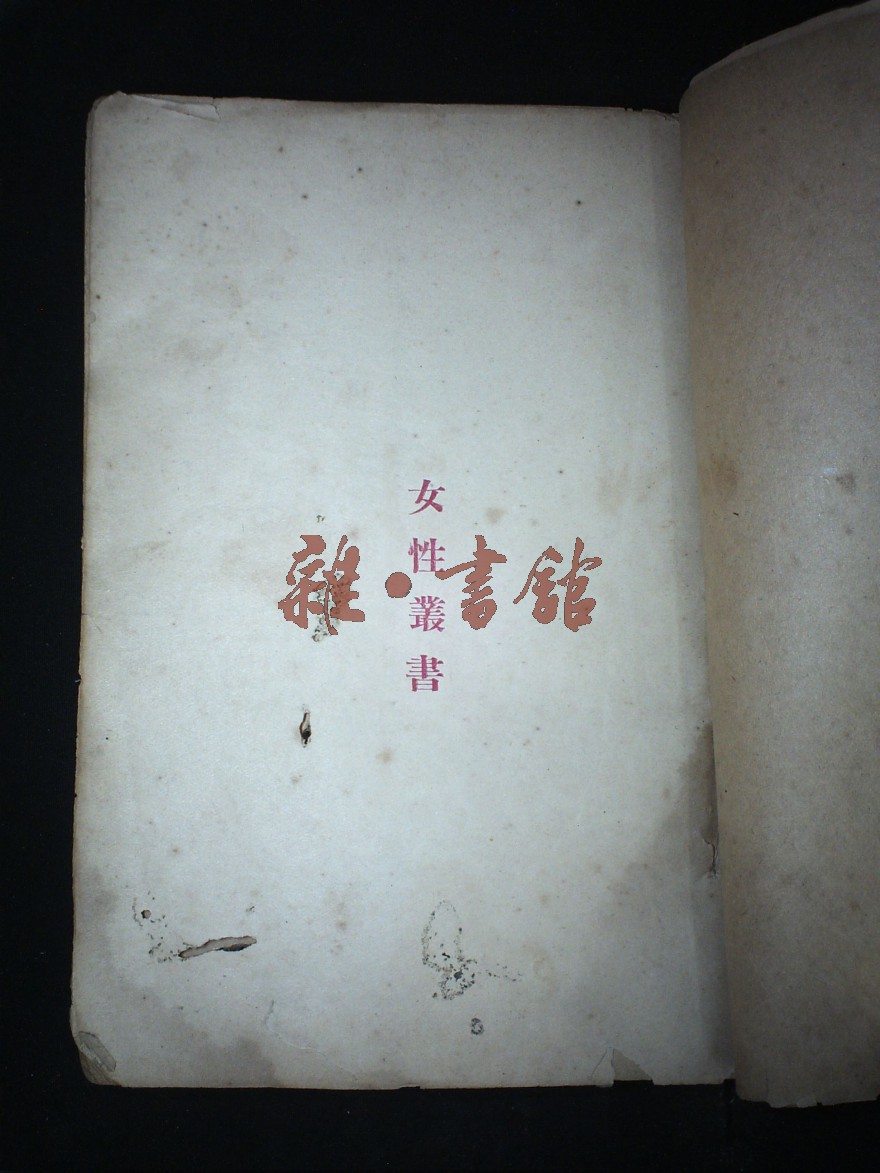 女性叢書
雜·書館